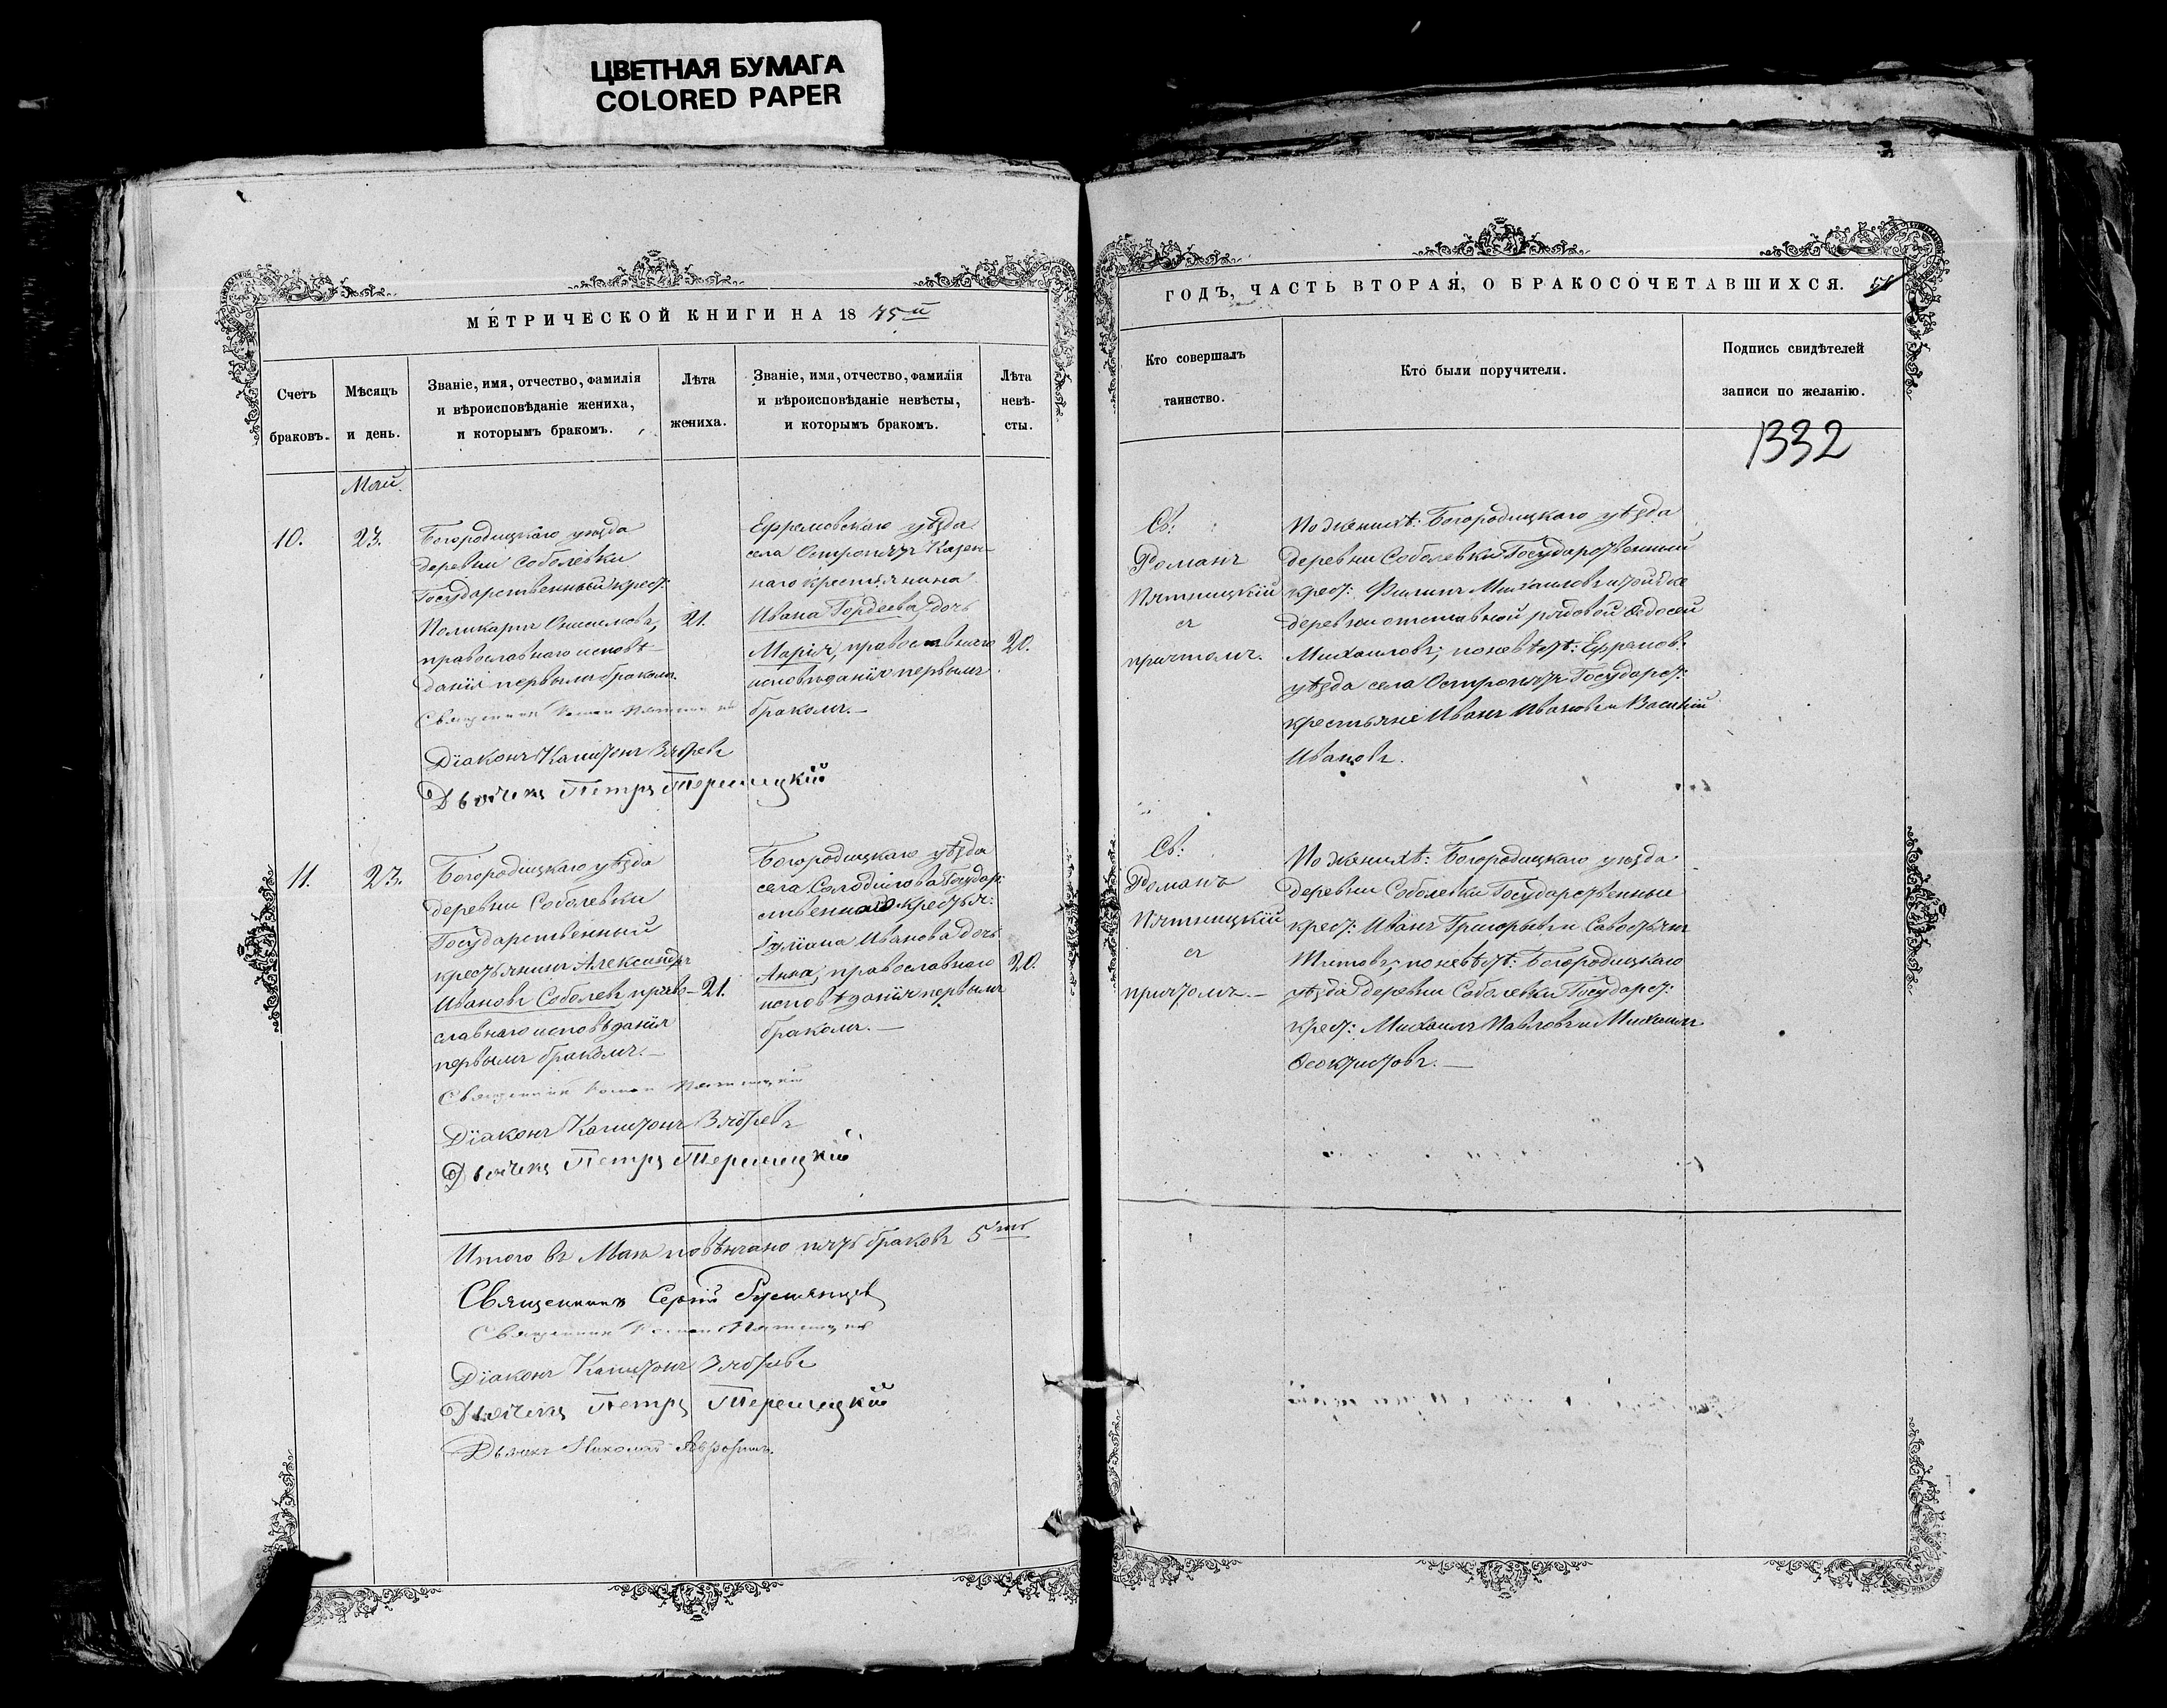 ЦВЕТНАЯ БУМАГА
COLORED PAPER
МЕТРИЧЕСКОЙ КНИГИ НА 18 75й
Счетъ
браковъ.
Мѣсяцъ
и день.
Званіе, имя, отчество, фамилія
и вѣроисповѣданіе жениха,
и которымъ бракомъ.
Лѣта
жениха.
Званіе, имя, отчество, фамилія
и вѣроисповѣданіе невѣсты,
и которымъ бракомъ.
Лѣта
невѣ-
сты.
Май.
10.
23.
Богородицкаго уѣзда
деревни Соболевки
Государственный крест:
Поликарпъ Онисимовъ,
православнаго исповѣ-
данія первымъ бракомъ.
21.
Ефремовскаго уѣзда
села Остропятъ Казен-
наго крестьянина
Ивана Гордеева дочь
Марія, православнаго
исповѣданія первымъ
бракомъ.—
20.
Священникъ Романъ Пятницкій
Діаконъ Капитонъ
Дьячекъ Петръ
11.
23.
Богородицкаго уѣзда
деревни Соболевки
Государственный
крестьянинъ Александръ
Ивановъ Соболевъ, право-
славнаго исповѣданія
первымъ бракомъ.—
21.
Богородицкаго уѣзда
села Солодилова Государ-
ственнаго крестья:
Іуліана Иванова дочь
Анна, православнаго
исповѣданія первымъ
бракомъ.—
20.
Священникъ Романъ Пятницкій
Діаконъ Капитонъ
Дьячекъ Петръ
Итого въ Маѣ повѣнчано пять браковъ 5ть
Священникъ Сергій Румянцевъ
Священникъ Романъ Пятницкій
Діаконъ Капитонъ
Дьячекъ Петръ
Николай
ГОДЪ, ЧАСТЬ ВТОРАЯ, О БРАКОСОЧЕТАВШИХСЯ.
Кто совершалъ
таинство.
Кто были поручители.
Подпись свидѣтелей
записи по желанію.
1332
Св:
Романъ
Пятницкій
съ
причтомъ.
По женихѣ: Богородицкаго уѣзда
деревни Соболевки Государственный
крест: Филипъ Михаиловъ и той же
деревни отставной рядовой Ѳедосей
Михаиловъ; по невѣстѣ: Ефремов:
уѣзда села Остропятъ Государст:
крестьяне Иванъ Ивановъ и Василій
Ивановъ.
Св:
Романъ
Пятницкій
съ
причтомъ.—
По женихѣ: Богородицкаго уѣзда
деревни Соболевки Государственные
крест: Иванъ Григорьевъ и Савостьянъ
Титовъ; по невѣстѣ: Богородицкаго
уѣзда деревни Соболевки Государст:
крест: Михаилъ Павловъ и Михаилъ
Ѳеоктистовъ.—